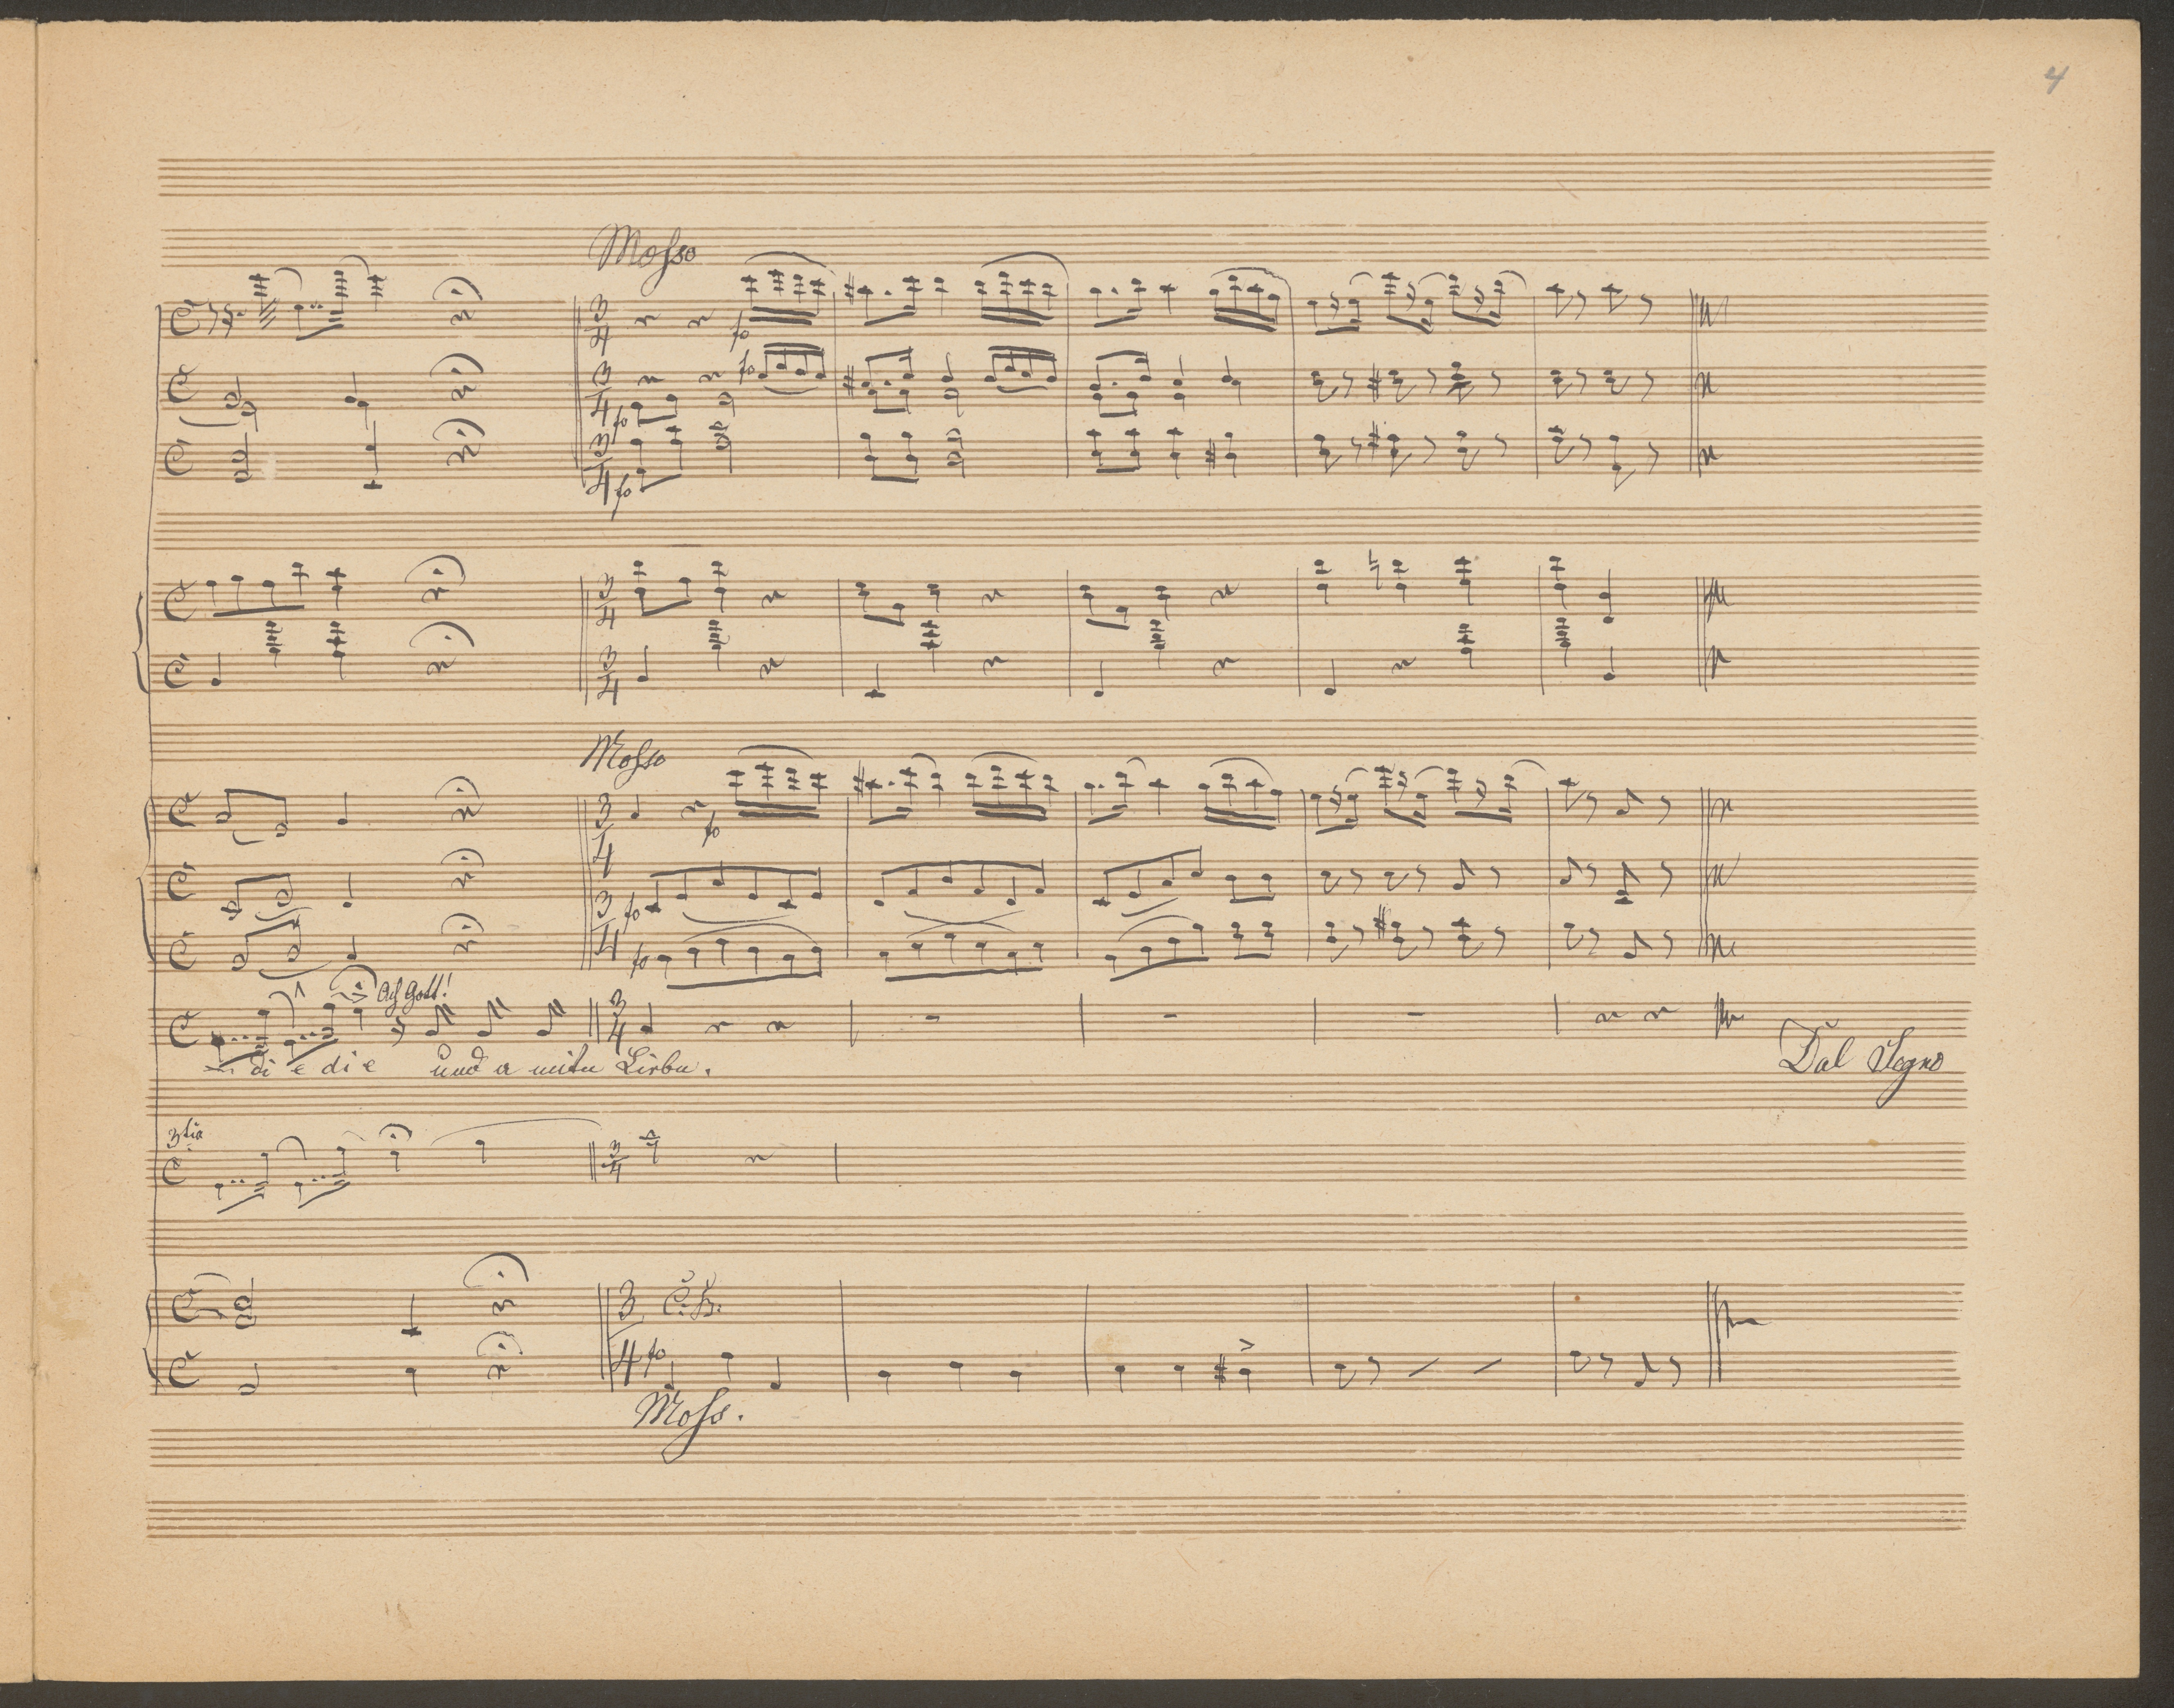 4
Mosso
fo
fo
fo
fo
Mosso
fo
fo
fo
Ach Gott!
di e di e und a Liebe.
Dal Segno
3tia
C. B.
fo
Moss.